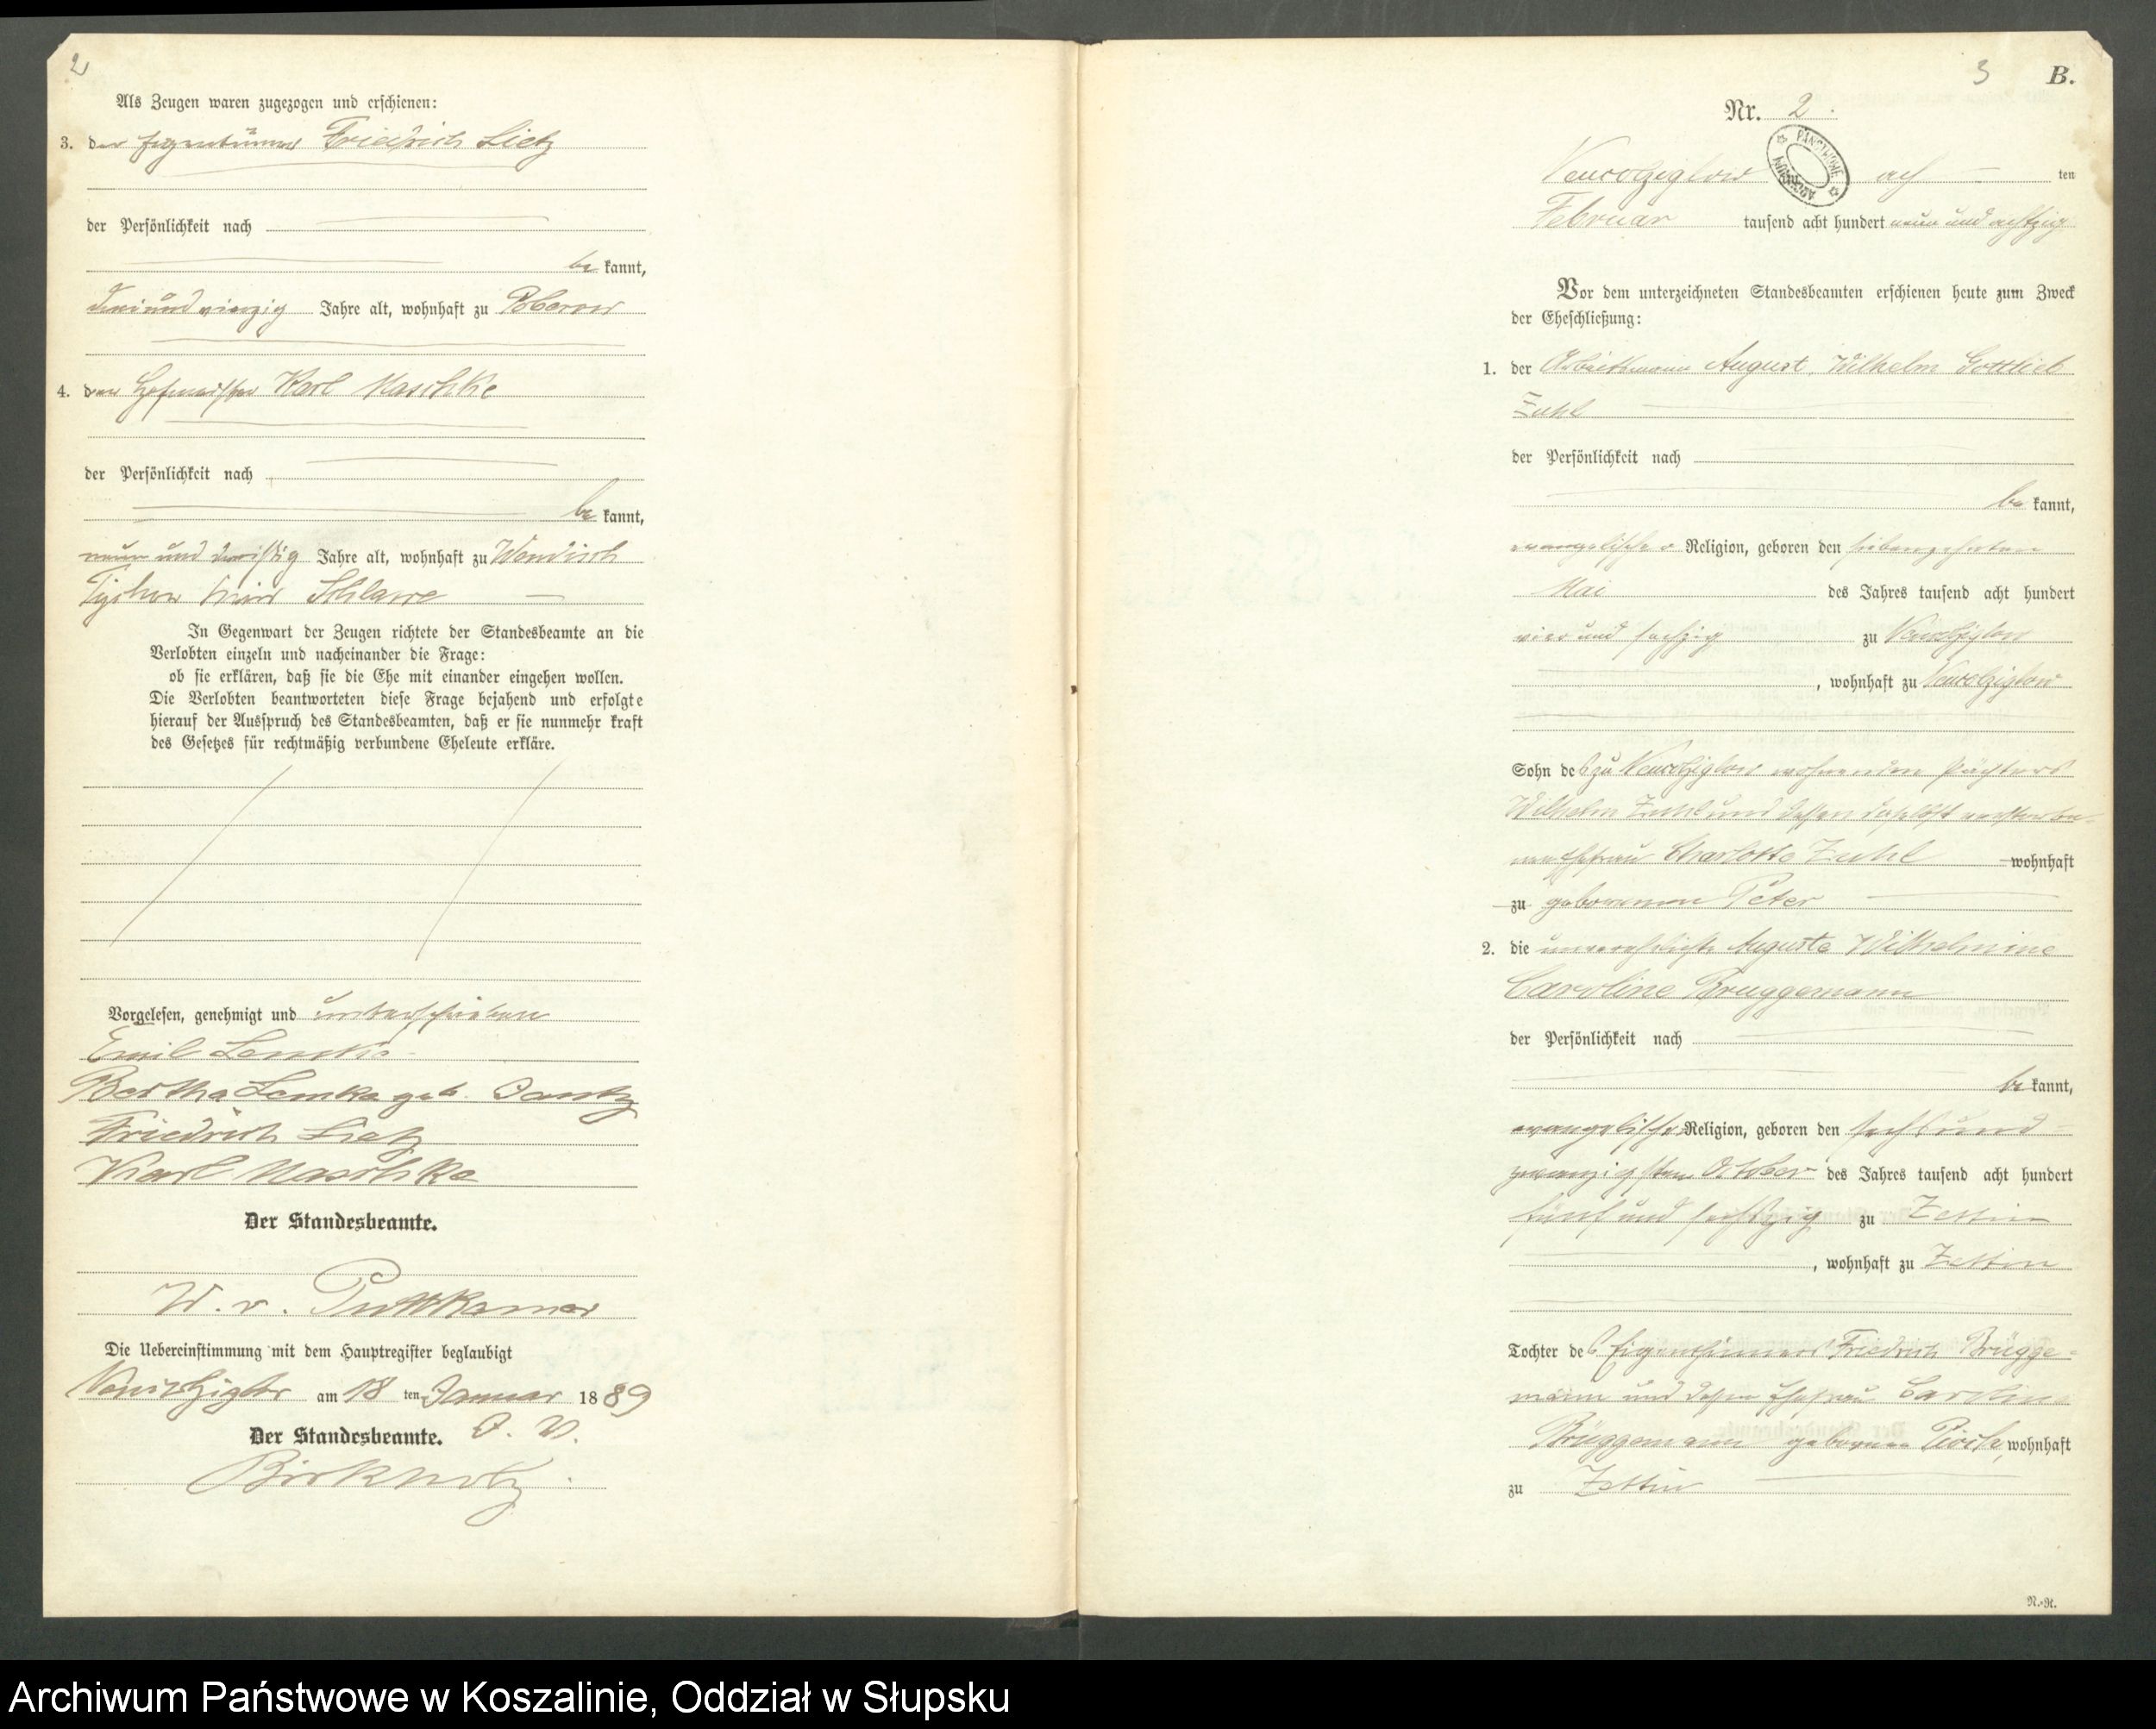 2
Als Zeugen waren zugezogen und erschienen:
3. der Eigentümer Friedrich Lietz
der Persönlichkeit nach
be kannt,
drei und vierzig Jahre alt, wohnhaft zu Poberow
4. der Hofmeister Karl Maschke
der Persönlichkeit nach
be kannt,
neun und dreißig Jahre alt, wohnhaft zu Wendisch
Tychow Kreis Schlawe
In Gegenwart der Zeugen richtete der Standesbeamte an die
Verlobten einzeln und nacheinander die Frage:
ob sie erklären, daß sie die Ehe mit einander eingehen wollen.
Die Verlobten beantworteten diese Frage bejahend und erfolgte
hierauf der Ausspruch des Standesbeamten, daß er sie nunmehr kraft
des Gesetzes für rechtmäßig verbundene Eheleute erkläre.
Vorgelesen, genehmigt und unterschrieben
Emil Lemke
Bertha Lemke geb. Jantz
Friedrich Lietz
Karl Maschke
Der Standesbeamte.
W. v. Puttkamer
Die Uebereinstimmung mit dem Hauptregister beglaubigt
am 18 ten Januar 1889
Der Standesbeamte. J. V.
Birkholz
3 B.
Nr. 2.
Neuwolziglow ach ten
Februar tausend acht hundert neun und achtzig
Vor dem unterzeichneten Standesbeamten erschienen heute zum Zweck
der Eheschließung:
1. der Arbeitsmann August, Wilhelm Gottlieb
Zuhl
der Persönlichkeit nach
be kannt,
evangelischer Religion, geboren den siebenzehnten
Mai des Jahres tausend acht hundert
vier und sechzig zu Neuwolziglow
, wohnhaft zu Neuwolziglow
Sohn des zu Neuwolziglow wohnenden Pächters
Wilhelm Zuhl und dessen daselbst verstorbe-
nen Ehefrau Charlotte Zuhl wohnhaft
zu geborenen Peter
2. die unverehelichte Auguste Wilhelmine
Caroline Brüggemann
der Persönlichkeit nach
be kannt,
evangelischer Religion, geboren den sechs und
zwanzigsten October des Jahres tausend acht hundert
fünf und sechszig zu Zettin
, wohnhaft zu Zettin
Tochter des Eigenthümers Friedrich Brügge-
mann und dessen Ehefrau Caroline
Brüggemann geborene Pirch, wohnhaft
zu Zettin
N.-R.
Archiwum Państwowe w Koszalinie, Oddział w Słupsku